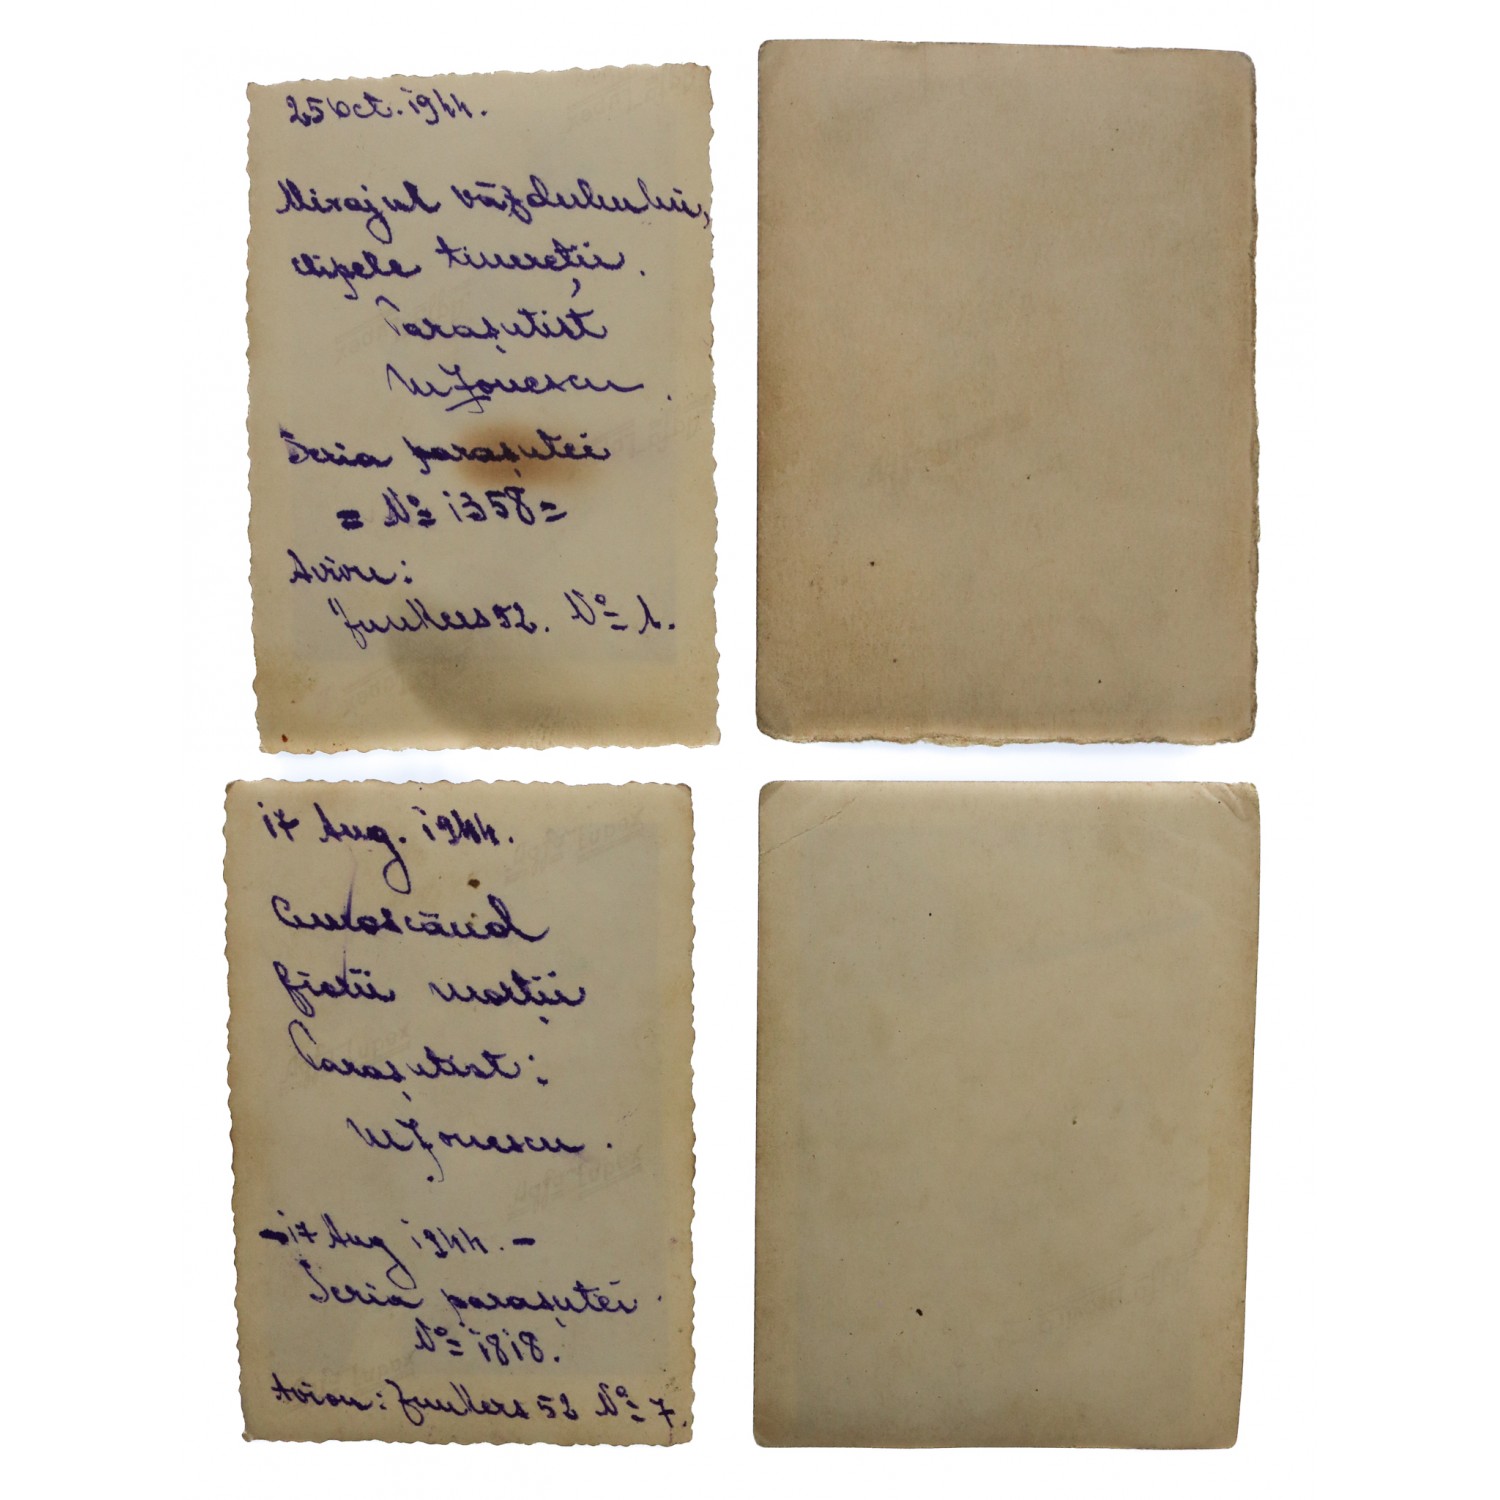 25 Oct. 1944.
Mirajul văzduhului,
clipele tinereții.
Parașutist
M Ionescu.
Seria parașutei
= Nº 1358 =
Avion:
Junkers 52. Nº 1.
17 Aug. 1944.
Cunoscând
fiorii morții
Parașutist:
M Ionescu.
- 17 Aug 1944. -
Seria parașutei
Nº 1818.
Avion: Junkers 52 Nº 7.